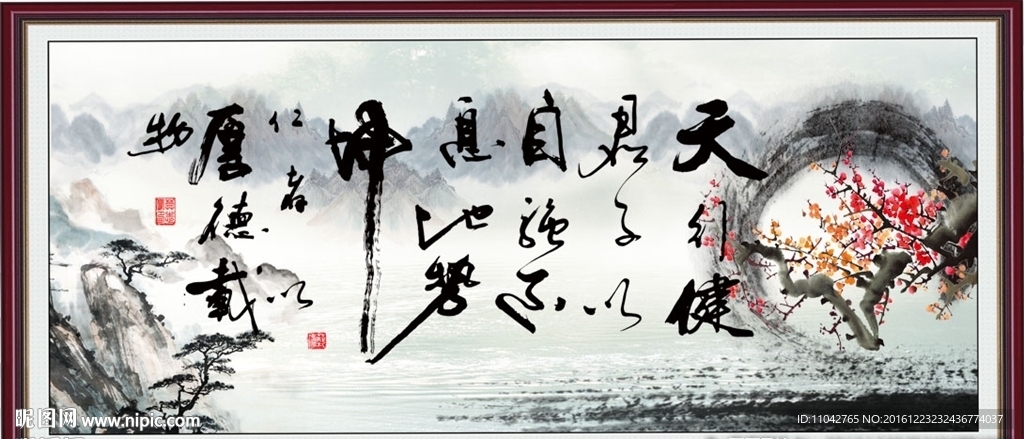 天行健
君子以
自強不
息地勢
坤
仁者以
厚德載
物
昵图网 www.nipic.com
ID:11042765 NO:20161223232436774037